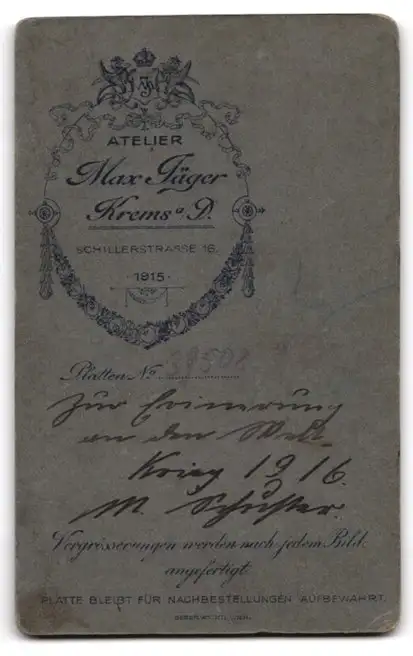 ATELIER
Max Jäger
Krems a. D.
SCHILLERSTRASSE 16.
1915
Platten No 38508
Zur Erinnerung
an den Welt-
Krieg 1916.
M. Schuster.
Vergrösserungen werden nach jedem Bild
angefertigt.
PLATTE BLEIBT FÜR NACHBESTELLUNGEN AUFBEWAHRT.